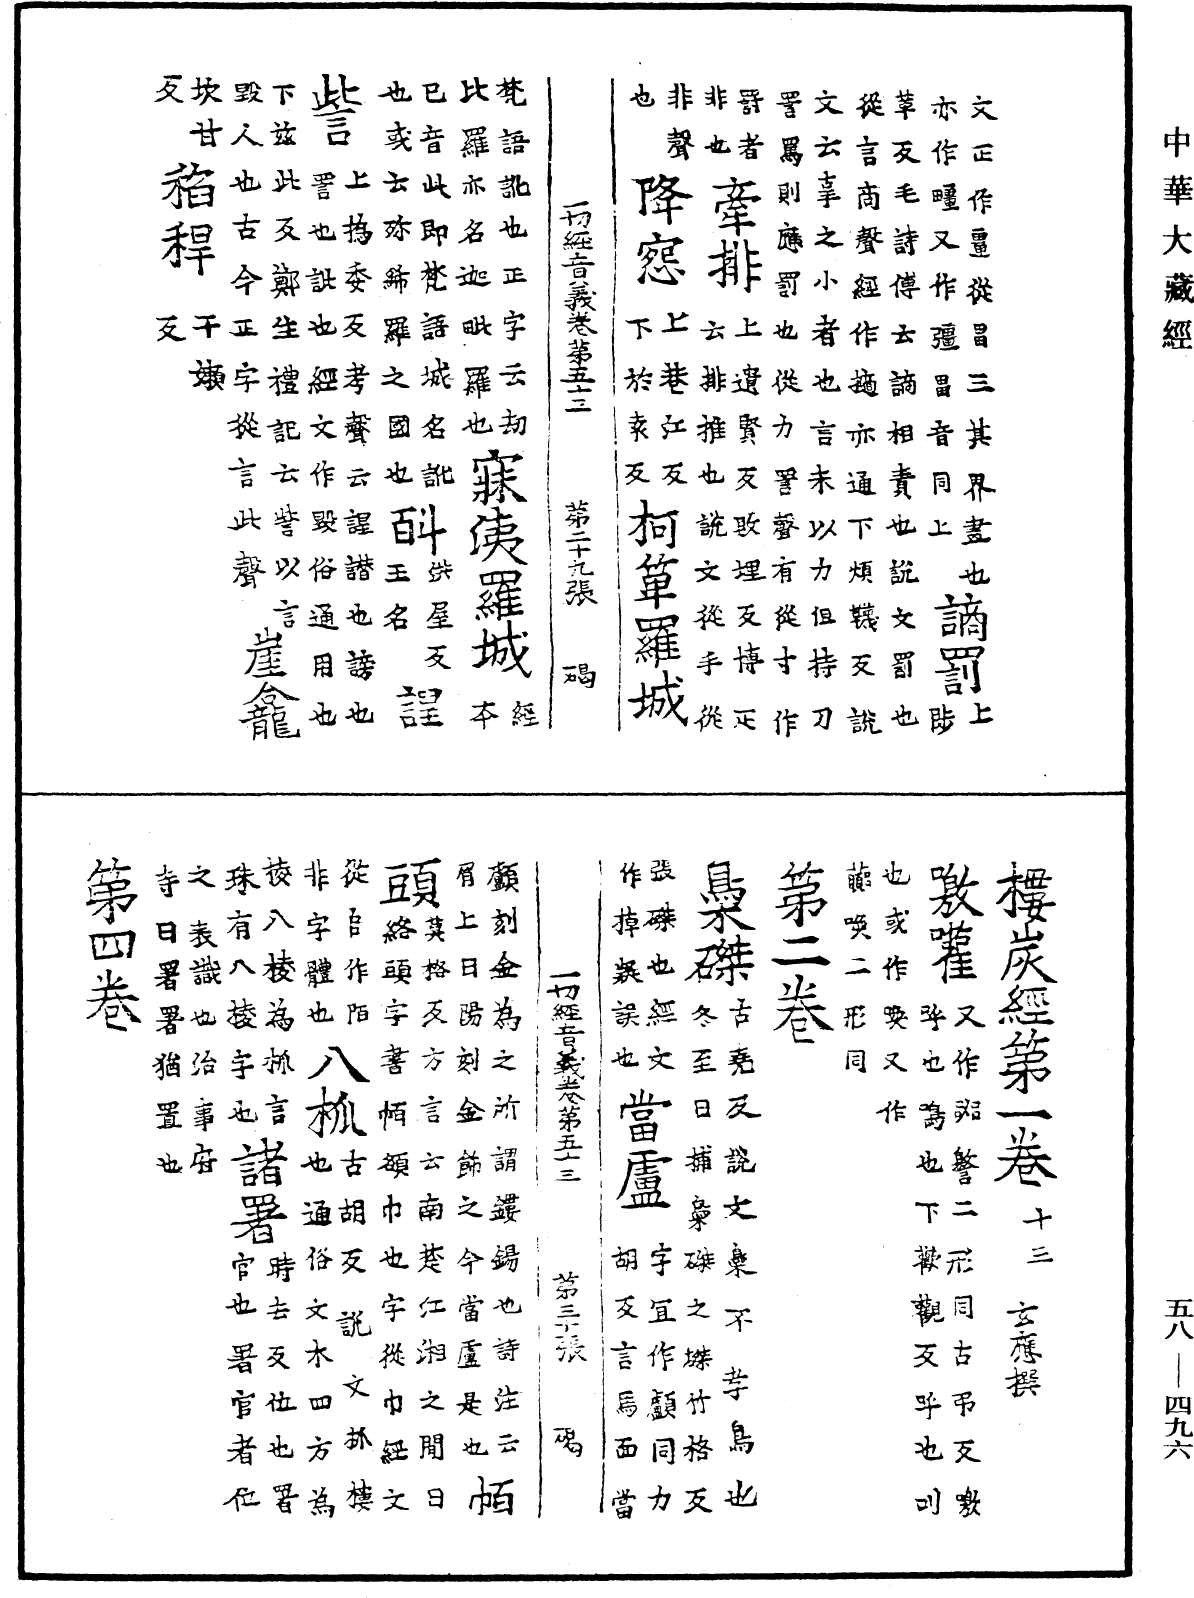 中華大藏經
文正作畺從畕三其界畫也謫罰上
亦作疆又作彊畕音同上陟
革反毛詩傳云謫相責也說文罰也
從言商聲經作擿亦通下煩韈反說
文云辠之小者也言未以力但持刀
詈罵則應罰也從力詈聲有從寸作
罸者
非也牽排上遣賢反敗埋反博
云排推也說文從手從
非聲
也降怨上巷江反
下於袁反柯箄羅城
一切經音義卷第五十三 第二十九張 碣
梵語訛也正字云劫
比羅亦名迦毗羅也寐洟羅城經本
已音此即梵語城名訛
也或云弥絺羅之國也䤋洪屋反王名諻
訾上撝委反考聲云諻譖也謗也
詈也訿也經文作毀俗通用也
下兹此反鄭生禮記云訾以言
毀人也古今正字從言此聲崖龕
坎甘
反稲稈干嬾反
樓炭經第一卷 十三 玄應撰
噭嚾又作嘂警二形同古弔反噭
呼也鳴也下歡觀反呼也叫
也或作喚又作
讙㗱二形同
第二卷
梟磔古堯反說文梟不孝鳥也
冬至日捕梟磔之磔竹格反
張磔也經文
作掉凝誤也當盧字冝作顱同力
胡反言馬面當
顱刻金為之所謂鏤鍚也詩注云
眉上曰陽刻金飾之今當盧是也帞
頭莫格反方言云南楚江湘之間曰
絡頭字書帞額巾也字從巾經文
從𨸏作陌
非字體也八柧古胡反說文柧棱
也通俗文木四方為
棱八棱為柧言
珠有八棱字也諸署時去反位也署
官也署官者位
之表識也治事府
寺曰署署猶置也
第四卷
一切經音義卷第五十三 第三十張 碣
五八—四九六